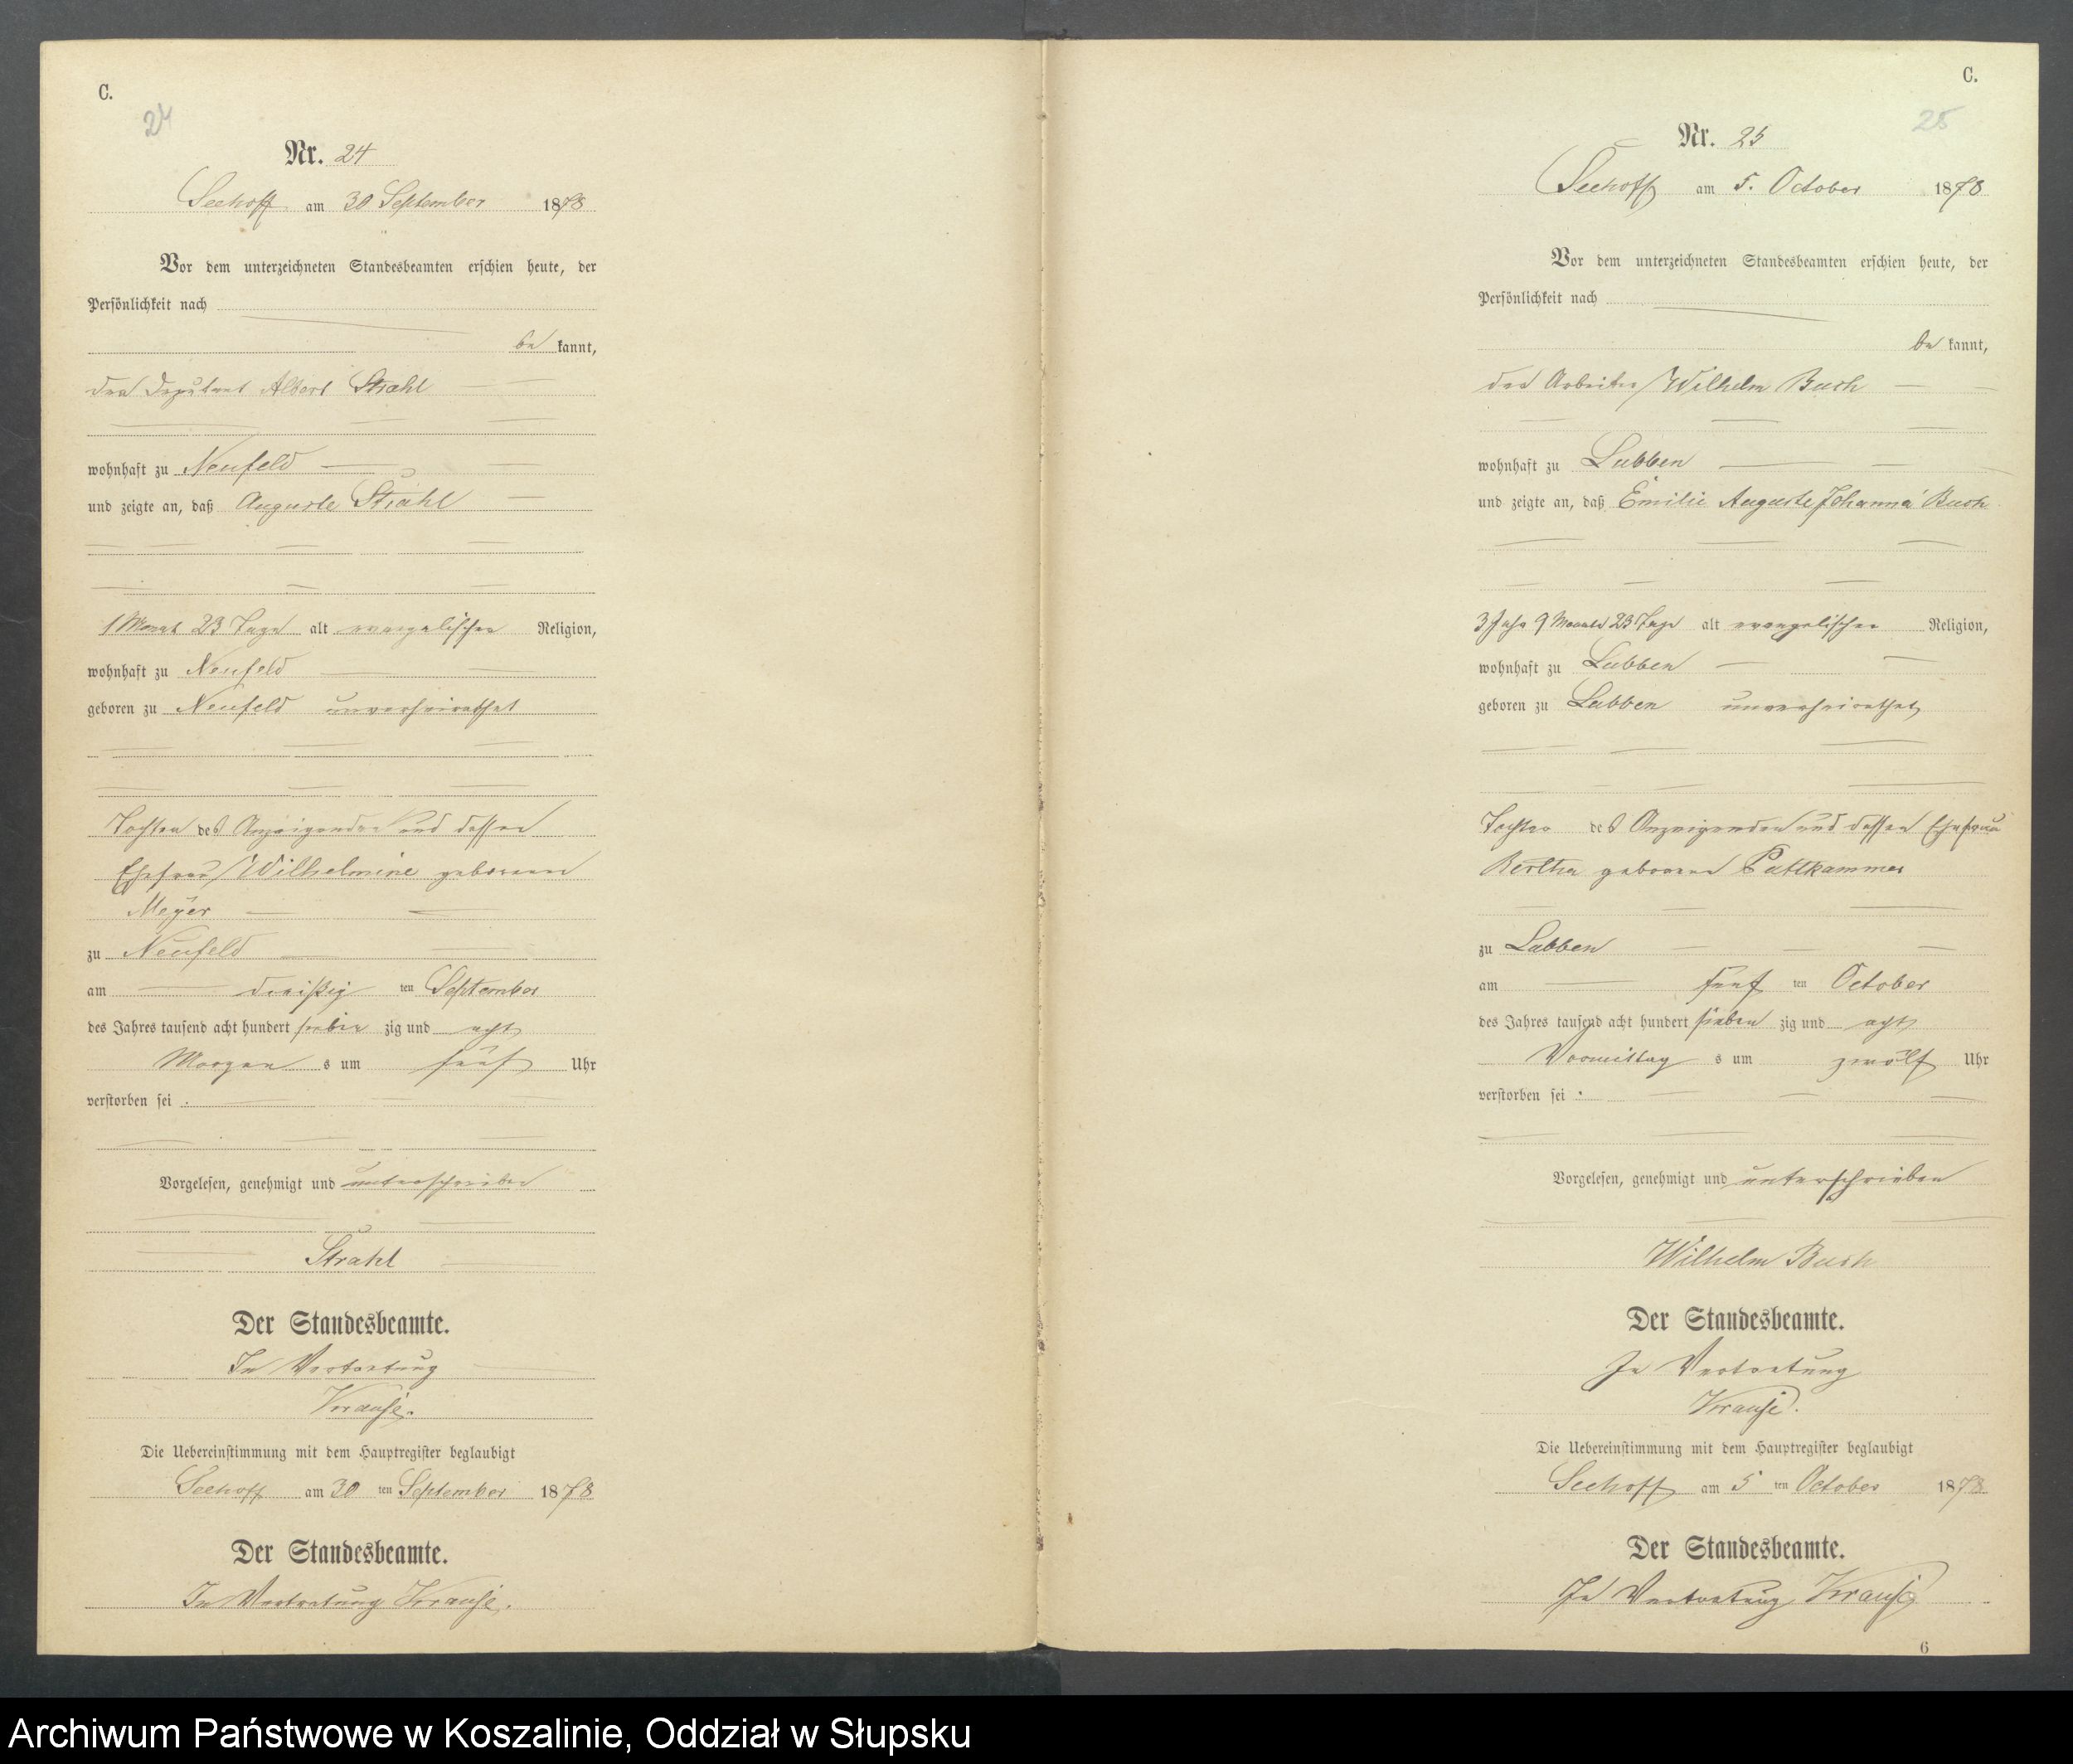 C.
24
Nr. 24
Seehoff am 30 September 1878
Vor dem unterzeichneten Standesbeamten erschien heute, der
Persönlichkeit nach
be kannt,
der Deputant Albert Strahl
wohnhaft zu Neufeld
und zeigte an, daß Auguste Strahl
1 Monat 23 Tage alt evangelischer Religion,
wohnhaft zu Neufeld
geboren zu Neufeld unverheirathet
Tochter des Anzeigenden und dessen
Ehefrau Wilhelmine geborenen
Meyer
zu Neufeld
am dreißig ten September
des Jahres tausend acht hundert sieben zig und acht
Morgen s um fünf Uhr
verstorben sei .
Vorgelesen, genehmigt und unterschrieben
Strahl
Der Standesbeamte.
In Vertretung
Krause.
Die Uebereinstimmung mit dem Hauptregister beglaubigt
Seehoff am 30 ten September 1878
Der Standesbeamte.
In Vertretung Krause.
C.
25
Nr. 25
Seehoff am 5. October 1878
Vor dem unterzeichneten Standesbeamten erschien heute, der
Persönlichkeit nach
be kannt,
der Arbeiter Wilhelm Bush
wohnhaft zu Lubben
und zeigte an, daß Emilie Auguste Johanna Bush
3 Jahr 9 Monate 23 Tage alt evangelischer Religion,
wohnhaft zu Lubben
geboren zu Lubben unverheirathet
Tochter des Anzeigenden und dessen Ehefrau
Bertha geborene Puttkammer
zu Lubben
am fünf ten October
des Jahres tausend acht hundert sieben zig und acht
Vormittag s um zwölf Uhr
verstorben sei .
Vorgelesen, genehmigt und unterschrieben
Wilhelm Bush
Der Standesbeamte.
In Vertretung
Krause.
Die Uebereinstimmung mit dem Hauptregister beglaubigt
Seehoff am 5 ten October 1878
Der Standesbeamte.
In Vertretung Krause
6
Archiwum Państwowe w Koszalinie, Oddział w Słupsku